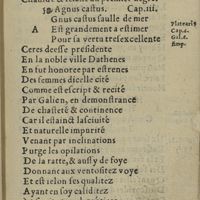 Agnus castus. Cap.iii.
Gnus castus saulle de mer
A Est grandement a estimer
Pour sa vertu tresexcellente
Ceres deesse presidente
En la noble ville Dathenes
En fut honoree par estrenes
Des femmes dicelle cité
Comme est escript & recité
Par Galien, en demonstrance
De chasteté & continence
Car il estainct lasciuité
Et naturelle ebrieté
Venant par inclinations
Purge les opilations
De la ratte, & aussy de foye
Donnant aux ventositez voye
Et est selon ses qualitez
Ayant en soy caliditez
Platearis
Cap.4.
Gal.6.
simp.